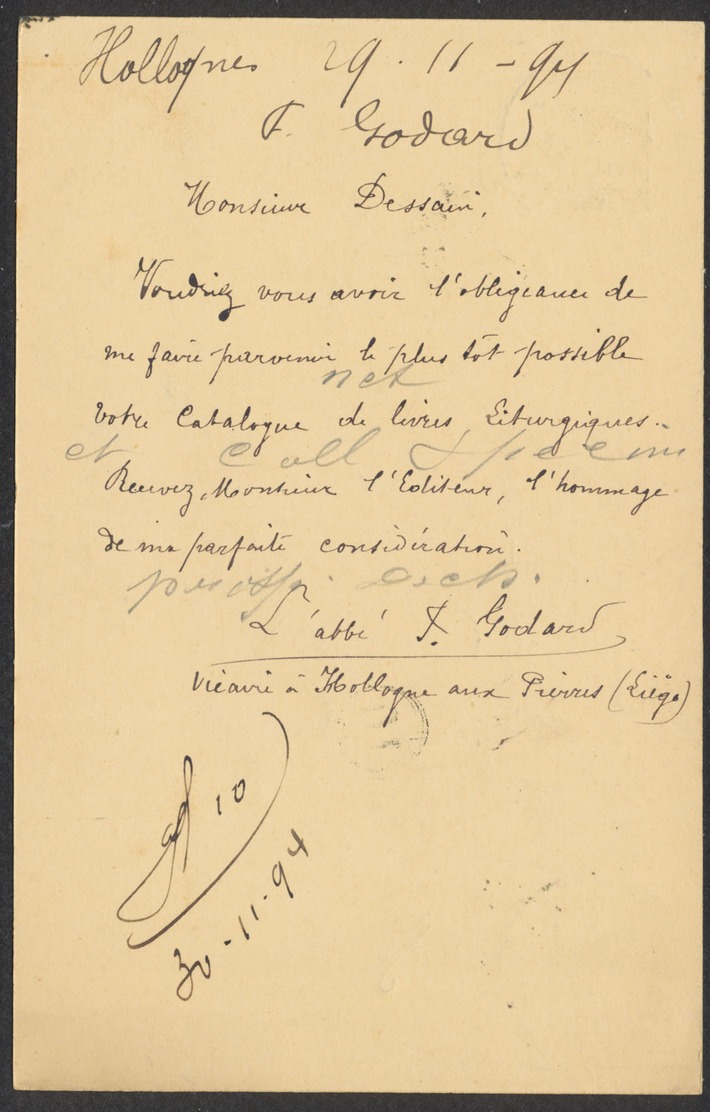 Hollognes 29 . 11 - 94
F. Godard
Monsieur Dessain,
Voudriez vous avoir l'obligeance de
me faire parvenir le plus tôt possible
net
votre Catalogue de livres Liturgiques.
et Coll Specim
Recevez, Monsieur l'Editeur, l'hommage
de ma parfaite considération.
L'abbé F. Godard
Vicaire à Hollogne aux Pierres (Liége)
10
30-11-94